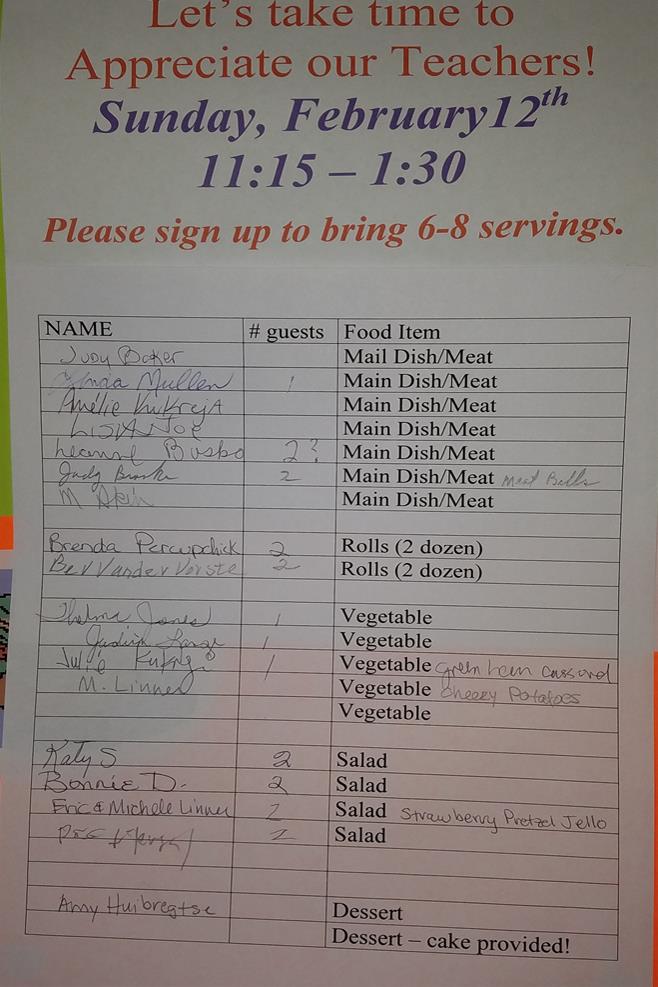 Let's take time to
Appreciate our Teachers!
Sunday, February12th
11:15 – 1:30
Please sign up to bring 6-8 servings.
NAME # guests Food Item
Judy Baker Mail Dish/Meat
Linda Mullen 1 Main Dish/Meat
Amélie KuKrejA Main Dish/Meat
LISA Noe Main Dish/Meat
Leanne Busbo 2? Main Dish/Meat
Judy 2 Main Dish/Meat Meat Balls
M Main Dish/Meat
Brenda Percupchick 2 Rolls (2 dozen)
Bev Vander Vorste 2 Rolls (2 dozen)
Thelma Jones 1 Vegetable
1 Vegetable
Julie 1 Vegetable green bean
M. Linner Vegetable Cheezy Potatoes
Vegetable
Katy S 2 Salad
Bonnie D. 2 Salad
Eric & Michele Linner 2 Salad Strawberry Pretzel Jello
2 Salad
Amy Huibregtse Dessert
Dessert – cake provided!